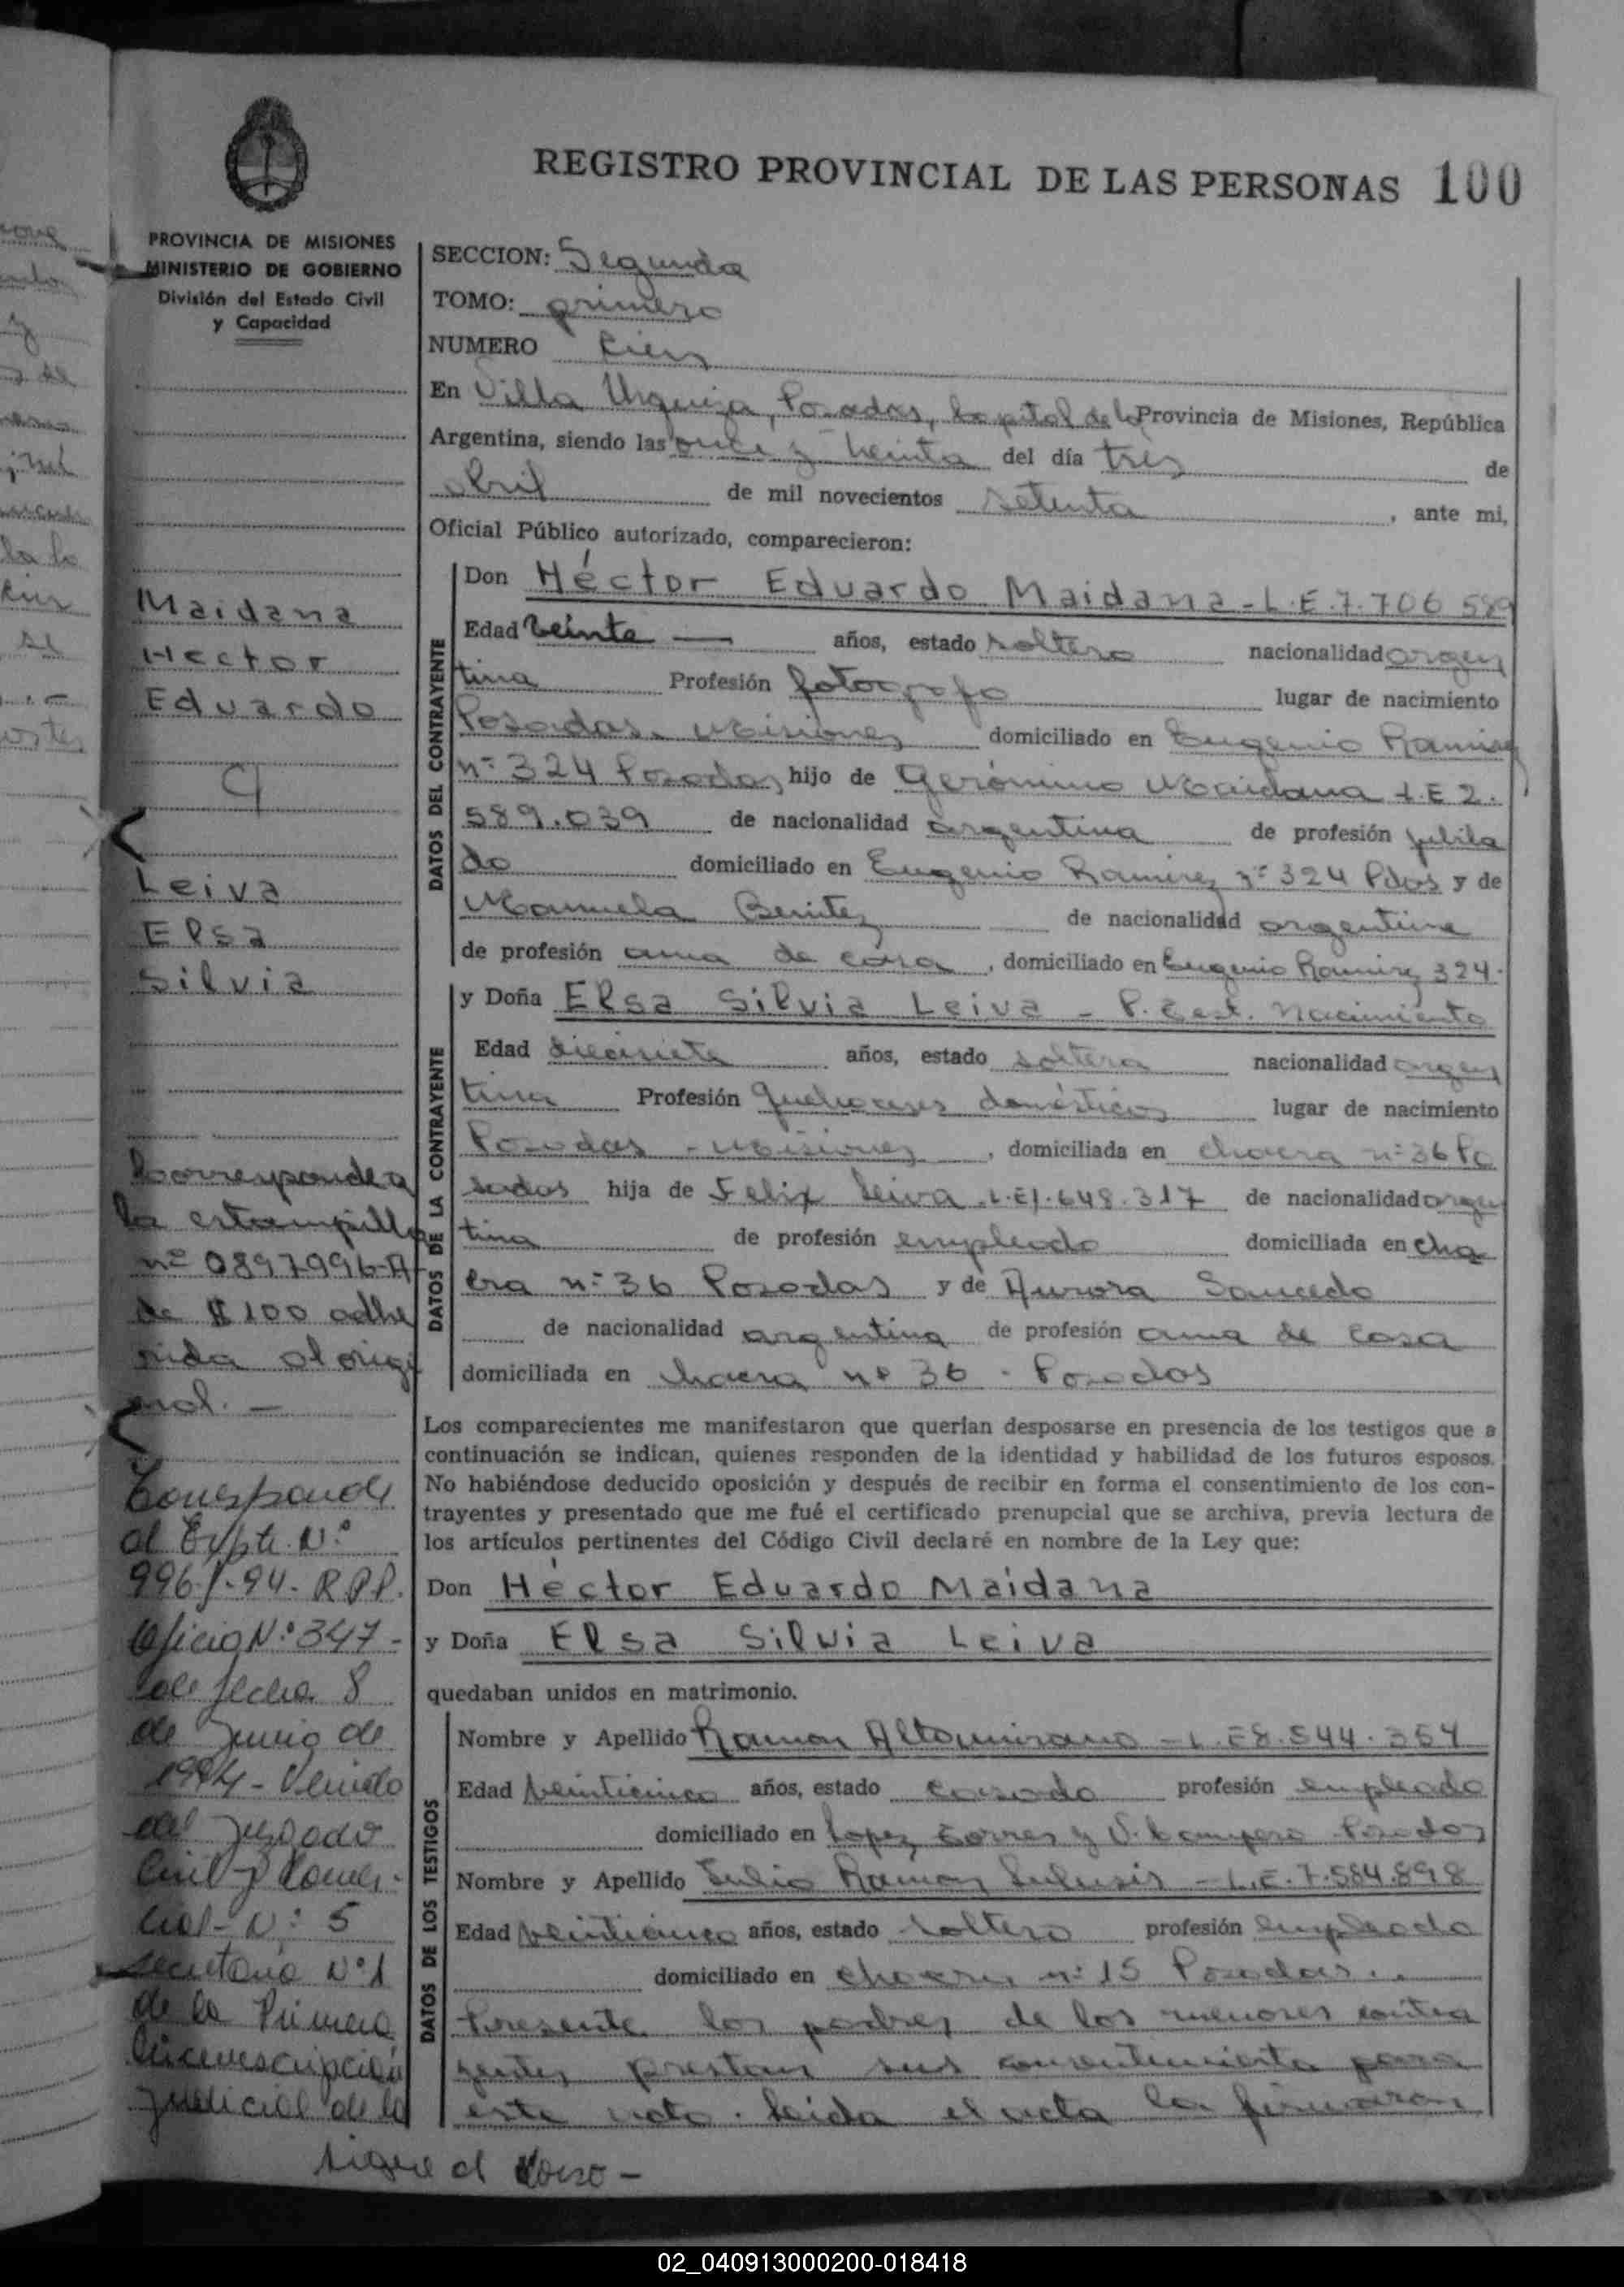 REGISTRO PROVINCIAL DE LAS PERSONAS 100
PROVINCIA DE MISIONES
MINISTERIO DE GOBIERNO
División del Estado Civil
y Capacidad
SECCION: Segunda
TOMO: primero
NUMERO Cien
En Villa Urquiza, Posadas, Capital de la Provincia de Misiones, República
Argentina, siendo las once y treinta del día tres de
abril de mil novecientos setenta, ante mi,
Oficial Público autorizado, comparecieron:
DATOS DEL CONTRAYENTE
Don Héctor Eduardo Maidana - L.E. 7.706 589
Edad veinte — años, estado soltero nacionalidad argen
tina Profesión fotografo lugar de nacimiento
Posadas. Misiones domiciliado en Eugenio Ramirez
nº 324 Posadas, hijo de Gerónimo Maidana L.E 2.
589.039 de nacionalidad argentina de profesión jubila
do domiciliado en Eugenio Ramirez nº 324 Pdas y de
Manuela Benitez de nacionalidad argentina
de profesión ama de casa, domiciliado en Eugenio Ramirez 324.
DATOS DE LA CONTRAYENTE
y Doña Elsa Silvia Leiva - P. Cert. Nacimiento
Edad diecisiete años, estado soltera nacionalidad argen
tina Profesión Quehaceres domésticos lugar de nacimiento
Posadas - Misiones, domiciliada en chacra nº 36 Po
sadas hija de Felix Leiva. L.E 1.648.317 de nacionalidad argen
tina de profesión empleado domiciliada en cha
cra nº 36 Posadas y de Aurora Saucedo
de nacionalidad argentina de profesión ama de casa
domiciliada en chacra nº 36 - Posadas
Los comparecientes me manifestaron que querían desposarse en presencia de los testigos que a
continuación se indican, quienes responden de la identidad y habilidad de los futuros esposos.
No habiéndose deducido oposición y después de recibir en forma el consentimiento de los con-
trayentes y presentado que me fué el certificado prenupcial que se archiva, previa lectura de
los artículos pertinentes del Código Civil declaré en nombre de la Ley que:
Don Héctor Eduardo Maidana
y Doña Elsa Silvia Leiva
quedaban unidos en matrimonio.
DATOS DE LOS TESTIGOS
Nombre y Apellido Ramon Altamirano - L.E 8.544.354
Edad veinticinco años, estado casado profesión empleado
domiciliado en Lopez Torres y V. Campero Posadas
Nombre y Apellido Julio Ramón - L.E. 7.584.898
Edad veinticinco años, estado soltero profesión empleado
domiciliado en chacra nº 15 Posadas.
Presente los padres de los menores contra
yentes prestan sus consentimiento para
este acto. Leida el acta la firmaron
Maidana
Hector
Eduardo
Leiva
Elsa
Silvia
Corresponde a
la estampilla
nº 0897996-A
de $ 100 adhe
rida al origi
nal. —
Corresponde
al Expte. Nº
996-/-94- R.P.P.
Oficio Nº 347-
de fecha 8
de Junio de
1994 - Venido
del Juzgado
Civil y Comer-
cial - Nº 5
Secretaria Nº 1
de la Primera
Circunscripción
Judicial de la
sigue al dorso -
02_040913000200-018418